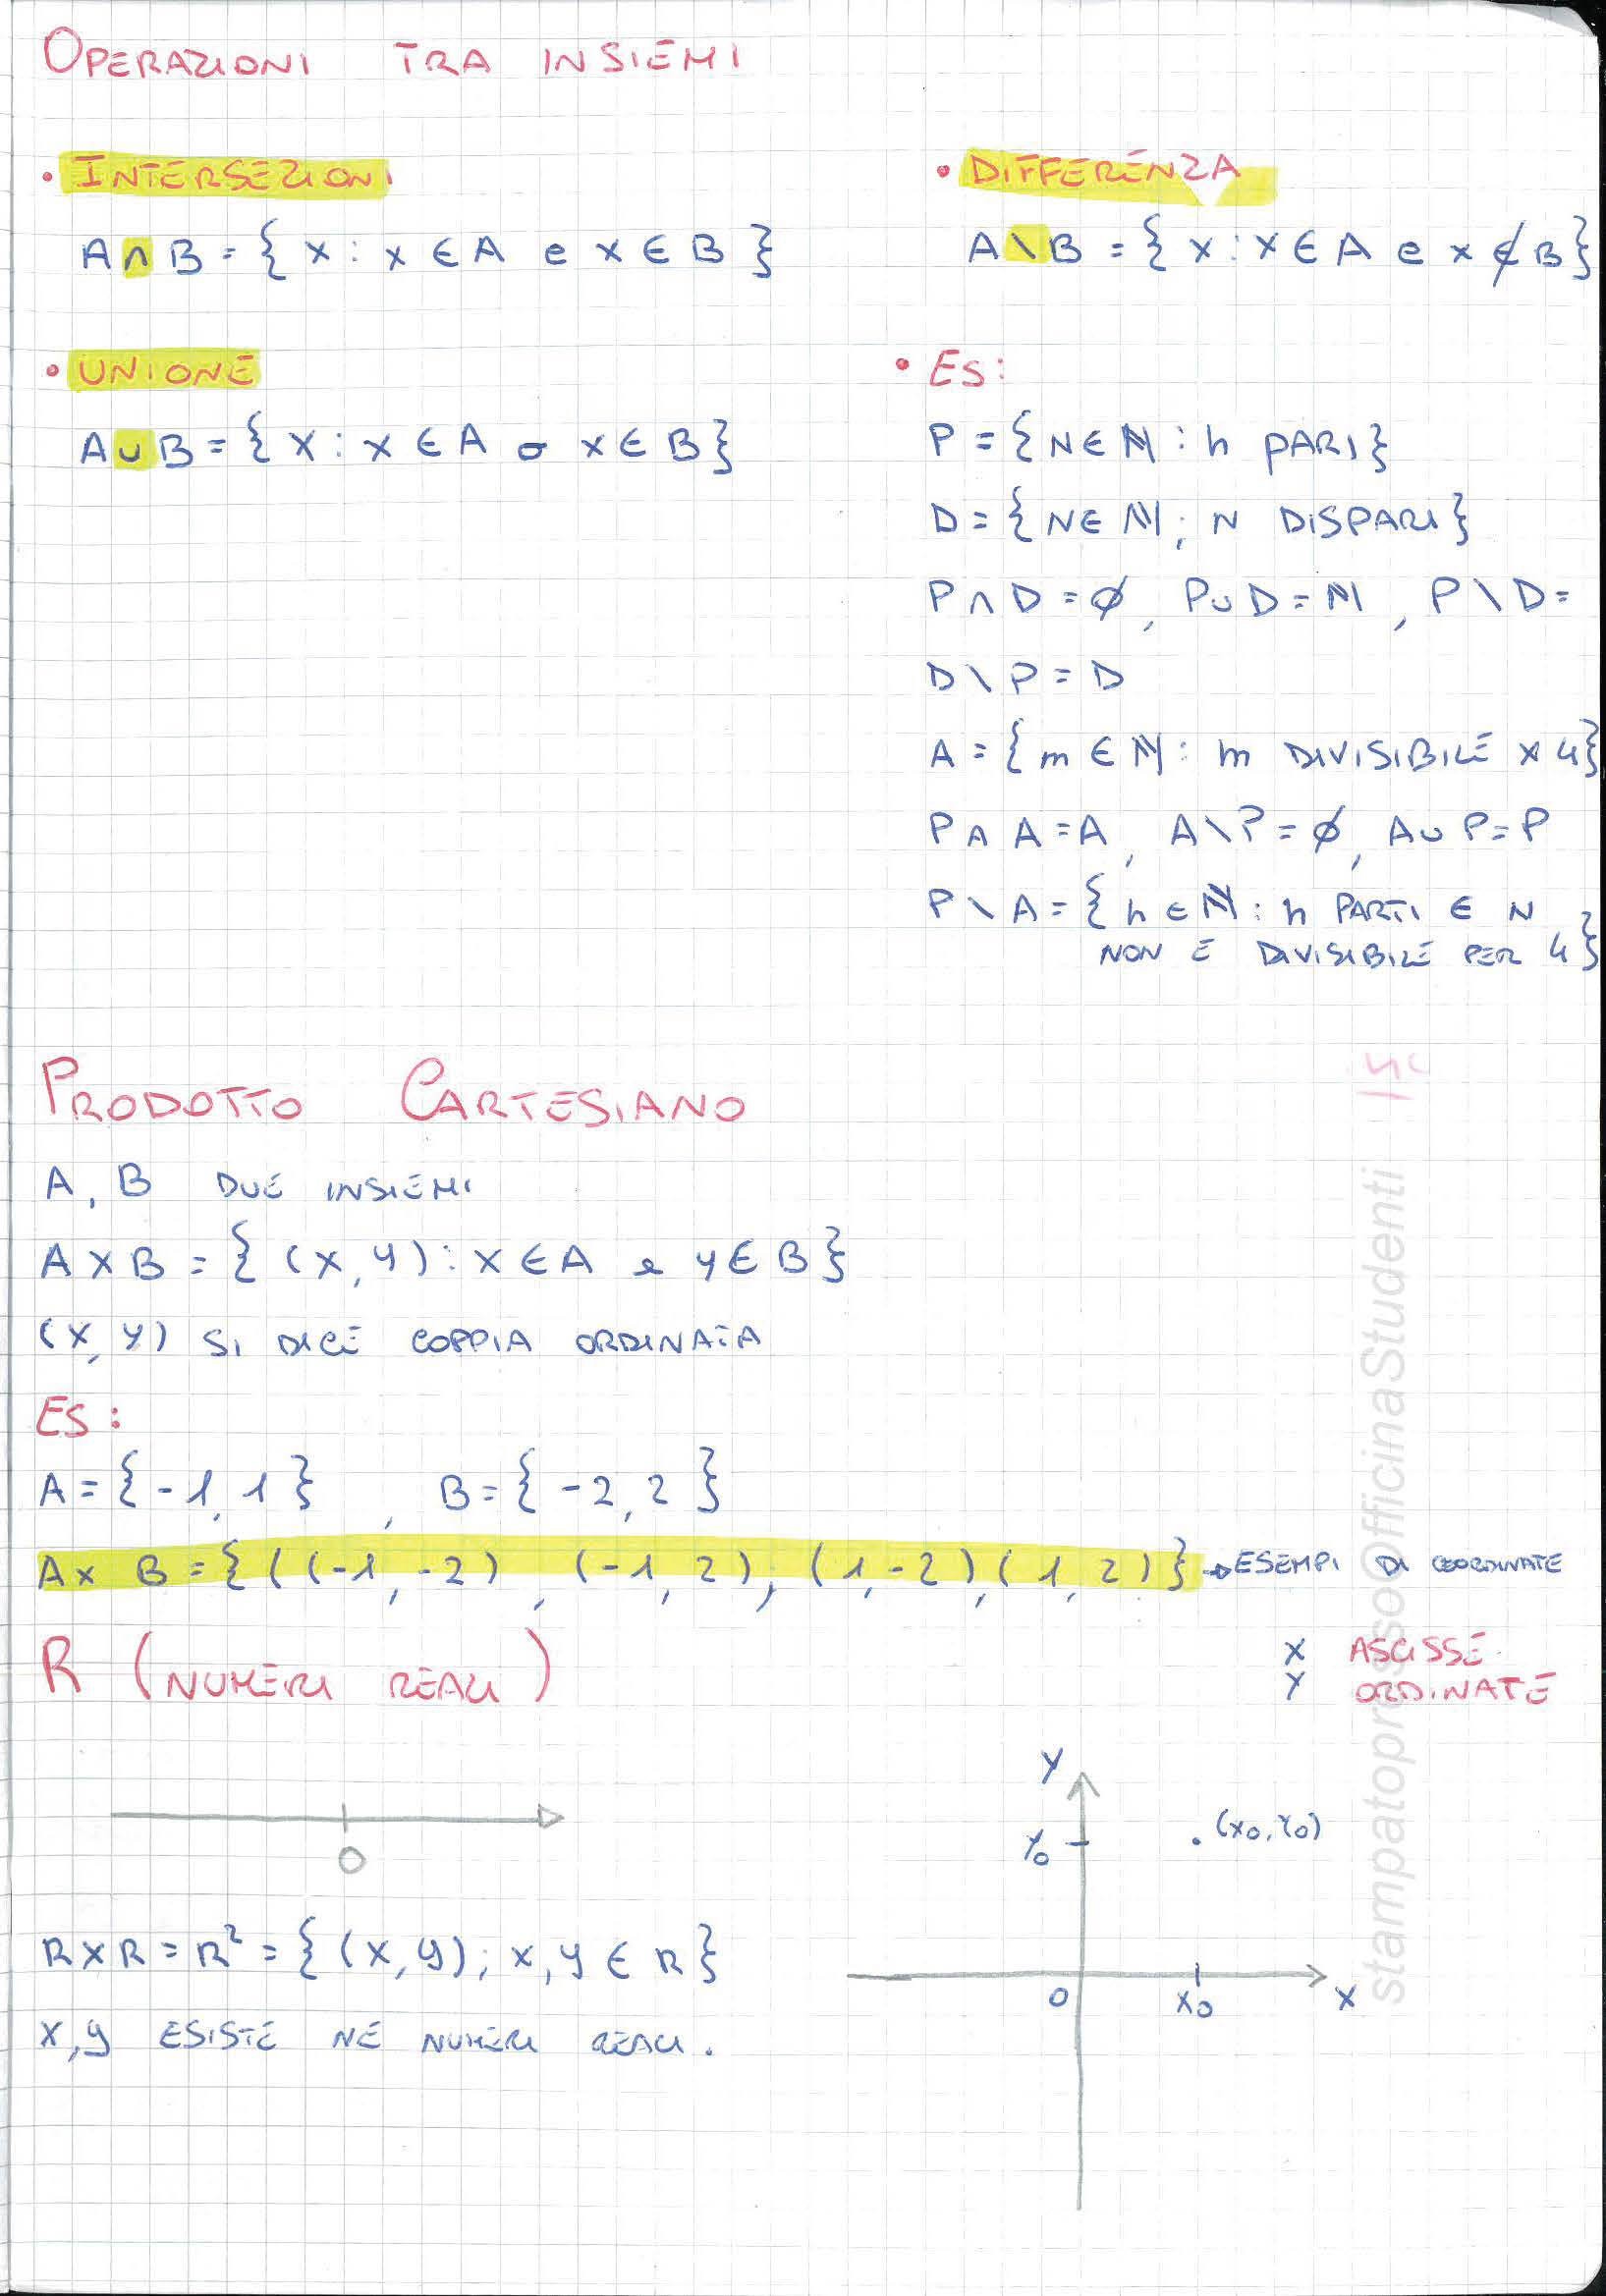 OPERAZIONI TRA INSIEMI
• INTERSEZIONI
A ∩ B = { x : x ∈ A e x ∈ B }
• UNIONE
A ∪ B = { x : x ∈ A o x ∈ B }
• DIFFERENZA
A \ B = { x : x ∈ A e x ∉ B }
• ES:
P = { N ∈ ℕ : n PARI }
D = { N ∈ ℕ ; N DISPARI }
P ∩ D = ∅, P ∪ D = ℕ, P \ D =
D \ P = D
A = { m ∈ ℕ : m DIVISIBILE x 4 }
P ∩ A = A, A \ P = ∅, A ∪ P = P
P \ A = { n ∈ ℕ : n PARTI E N
NON E DIVISIBILE PER 4 }
PRODOTTO CARTESIANO
A, B DUE INSIEMI
A x B = { (x, y) : x ∈ A e y ∈ B }
(x, y) SI DICE COPPIA ORDINATA
ES :
A = { -1, 1 } , B = { -2, 2 }
A x B = { ( (-1, -2) , (-1, 2) , (1, -2) , (1, 2) } → ESEMPI DI COORDINATE
X ASCISSE
Y ORDINATE
R (NUMERI REALI)
0
R x R = R² = { (x, y) ; x, y ∈ R }
x, y ESISTE NE NUMERI REALI.
Y
Y₀
(x₀, Y₀)
0
X₀
X
stampatopressoOfficinaStudenti